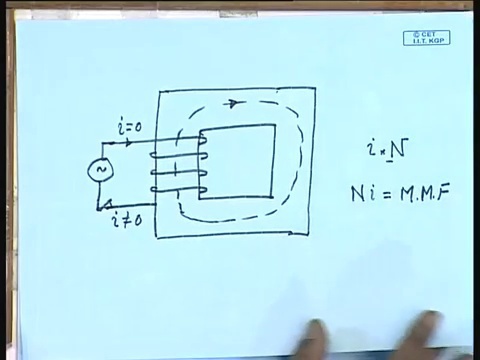 © CET
I.I.T. KGP
i=0
~
i≠0
i × N
Ni = M.M.F